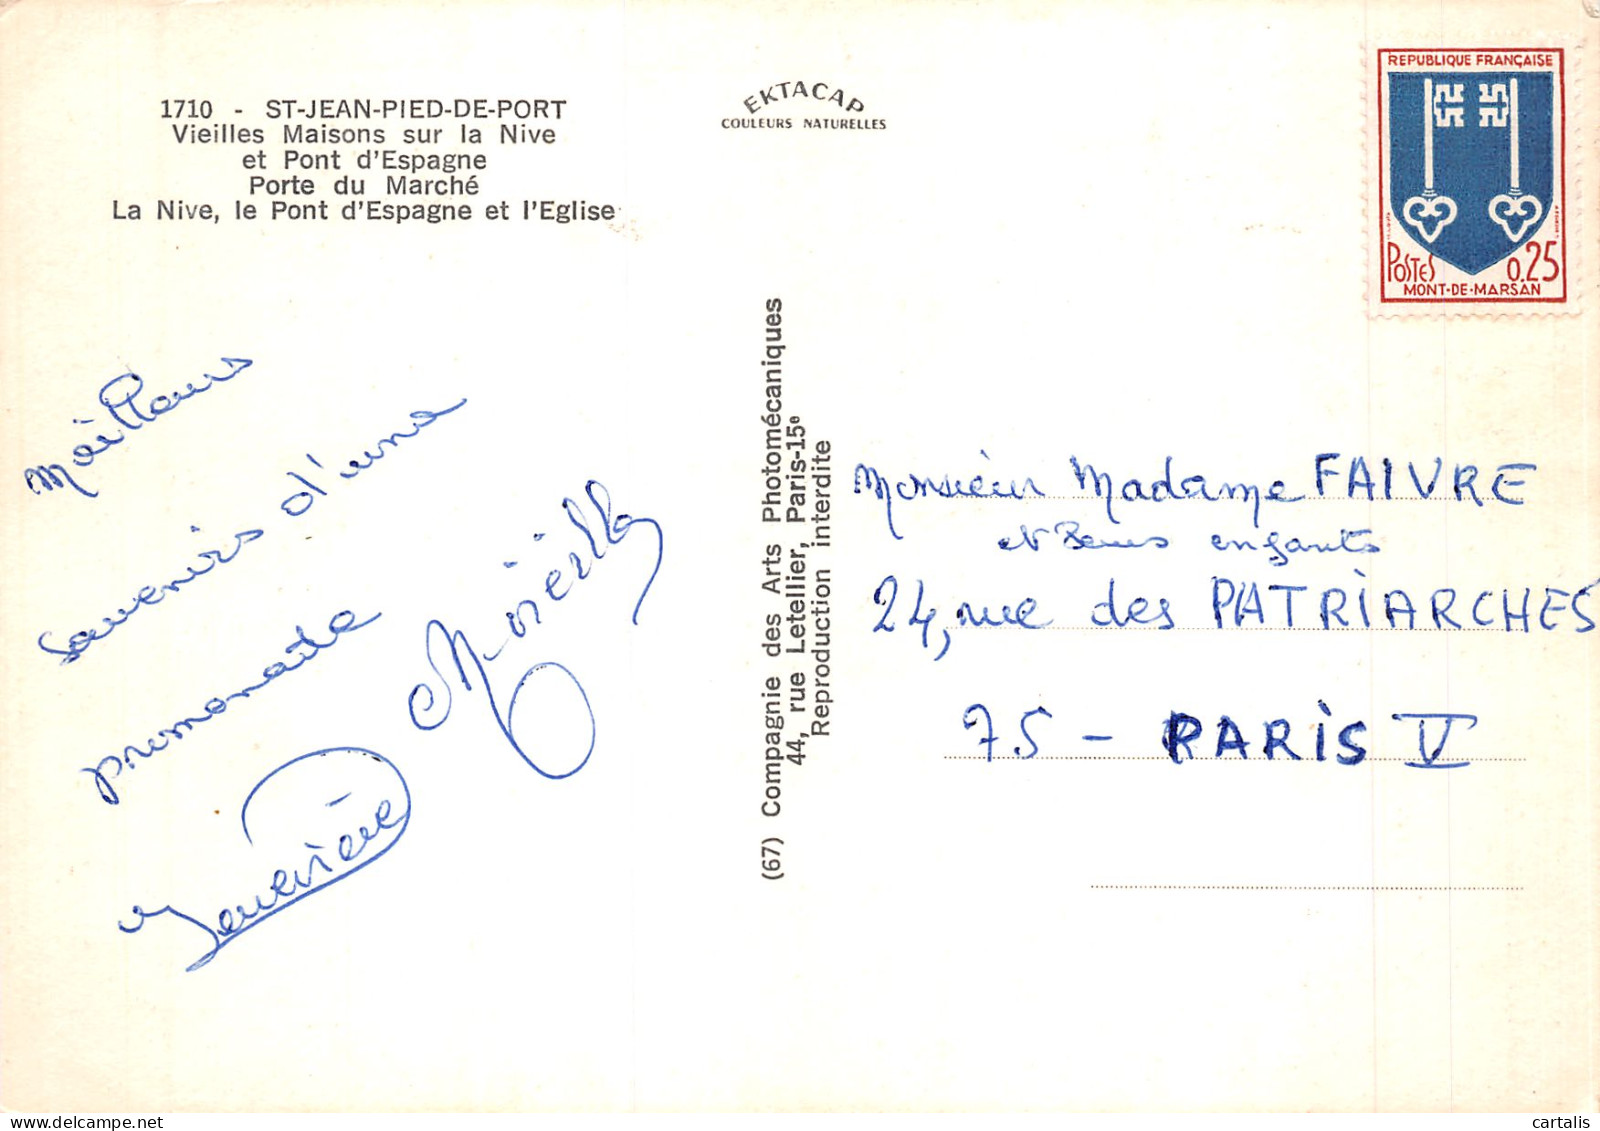 1710 - ST-JEAN-PIED-DE-PORT
Vieilles Maisons sur la Nive
et Pont d'Espagne
Porte du Marché
La Nive, le Pont d'Espagne et l'Eglise
EKTACAP
COULEURS NATURELLES
REPUBLIQUE FRANÇAISE
POSTES 0,25
MONT-DE-MARSAN
Meilleurs
souvenirs d'une
promenade
Geneviève
(67) Compagnie des Arts Photomécaniques
44, rue Letellier, Paris-15e
Reproduction interdite
Monsieur Madame FAIVRE
et Leurs enfants
24, rue des PATRIARCHES
75 - PARIS V
cartalis